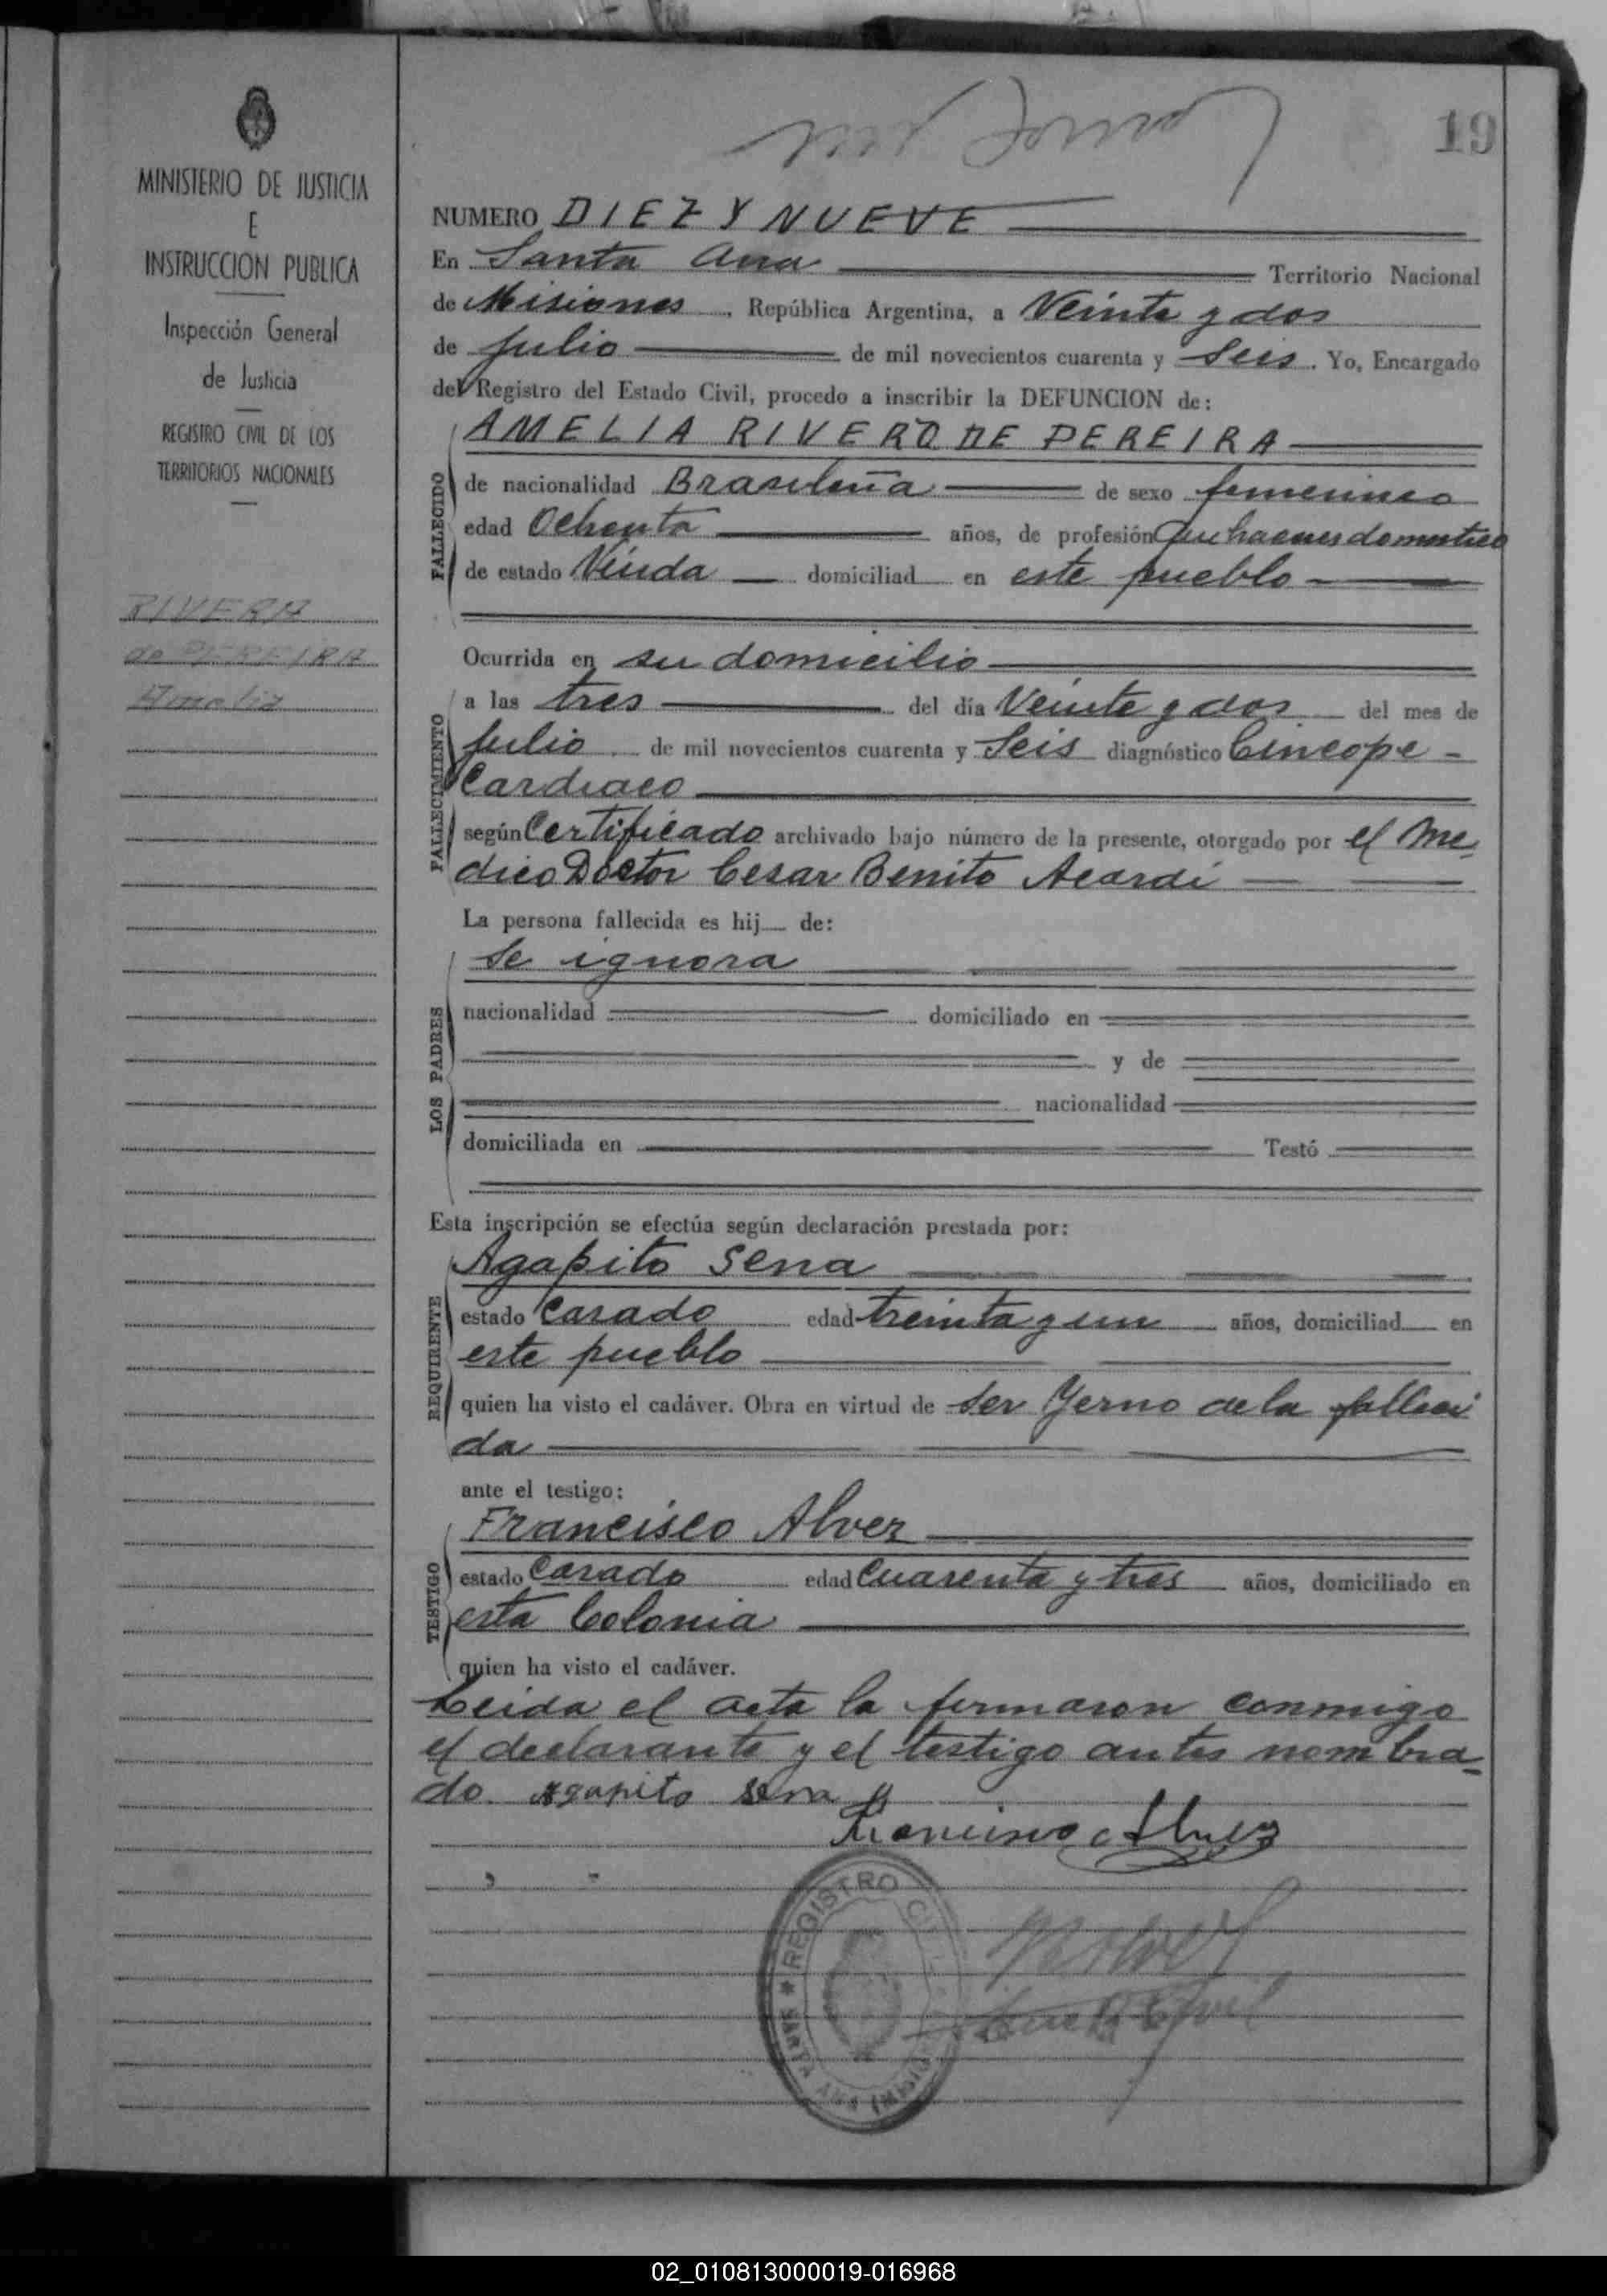 19
MINISTERIO DE JUSTICIA
E
INSTRUCCION PUBLICA
Inspección General
de Justicia
REGISTRO CIVIL DE LOS
TERRITORIOS NACIONALES
RIVERA
de PEREIRA
Amelia
NUMERO DIEZ Y NUEVE
En Santa Ana Territorio Nacional
de Misiones, República Argentina, a Veinte y dos
de julio de mil novecientos cuarenta y Seis. Yo, Encargado
del Registro del Estado Civil, procedo a inscribir la DEFUNCION de:
AMELIA RIVERO DE PEREIRA
FALLECIDO
de nacionalidad Brasileña de sexo femenino
edad Ochenta años, de profesión Quehaceres domestico
de estado Viuda domiciliad en este pueblo
Ocurrida en su domicilio
FALLECIMIENTO
a las tres del día Veinte y dos del mes de
julio de mil novecientos cuarenta y Seis diagnóstico Cincope -
Cardiaco
según Certificado archivado bajo número de la presente, otorgado por el Me-
dico Doctor Cesar Benito Acardi
La persona fallecida es hij de:
LOS PADRES
Se ignora
nacionalidad domiciliado en
y de
nacionalidad
domiciliada en Testó
Esta inscripción se efectúa según declaración prestada por:
REQUIRENTE
Agapito Sena
estado Casado edad treinta y un años, domiciliad en
este pueblo
quien ha visto el cadáver. Obra en virtud de ser Yerno de la falleci
da
ante el testigo:
TESTIGO
Francisco Alvez
estado Casado edad Cuarenta y tres años, domiciliado en
esta Colonia
quien ha visto el cadáver.
Leida el acta la firmaron conmigo
el declarante y el testigo antes nombra-
do. Agapito Sena
Francisco Alvez
REGISTRO CIVIL
SANTA ANA (MISIONES)
02_010813000019-016968